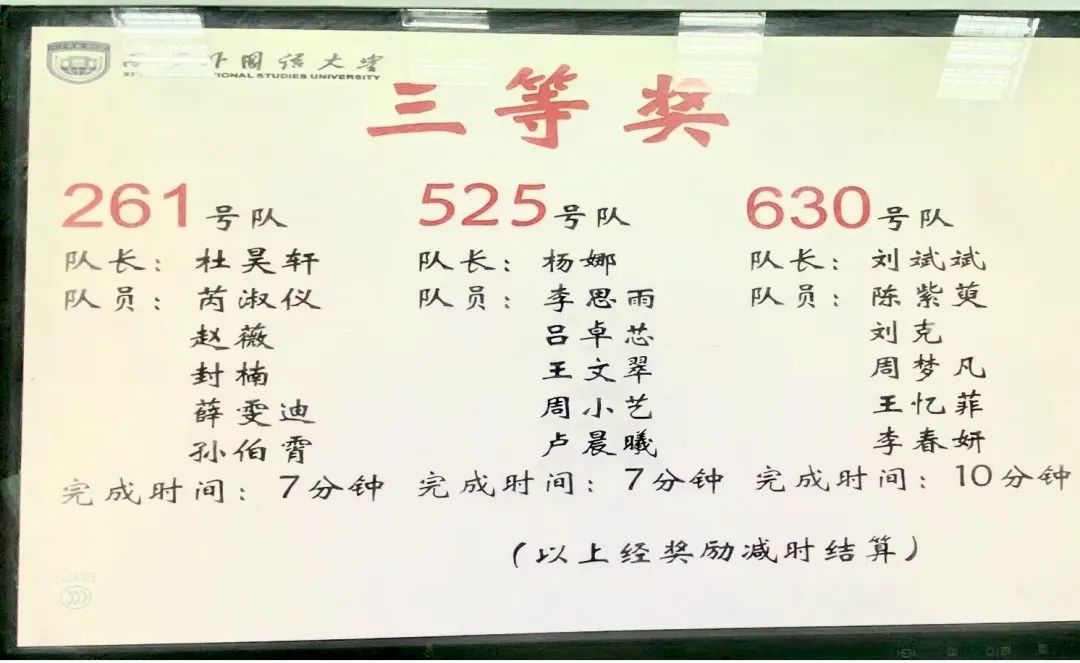 外国语大学
STUDIES UNIVERSITY
三等奖
261号队
队长：杜昊轩
队员：芮淑仪
赵薇
封楠
薛雯迪
孙伯霄
完成时间：7分钟
525号队
队长：杨娜
队员：李思雨
吕卓芯
王文翠
周小艺
卢晨曦
完成时间：7分钟
630号队
队长：刘斌斌
队员：陈紫萸
刘克
周梦凡
王忆菲
李春妍
完成时间：10分钟
（以上经奖励减时结算）